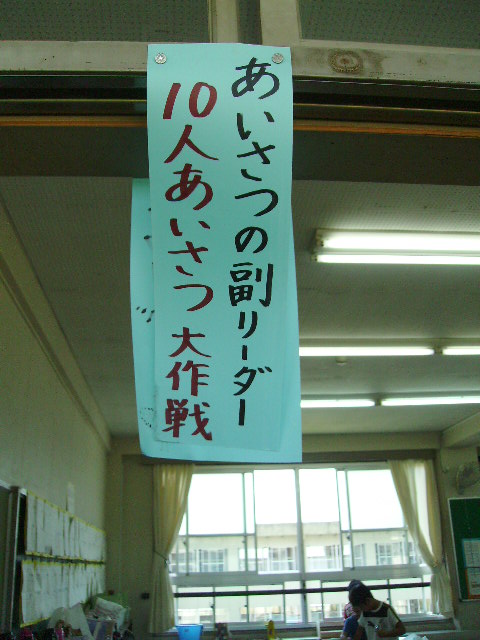 あいさつの副リーダー
10人あいさつ大作戦